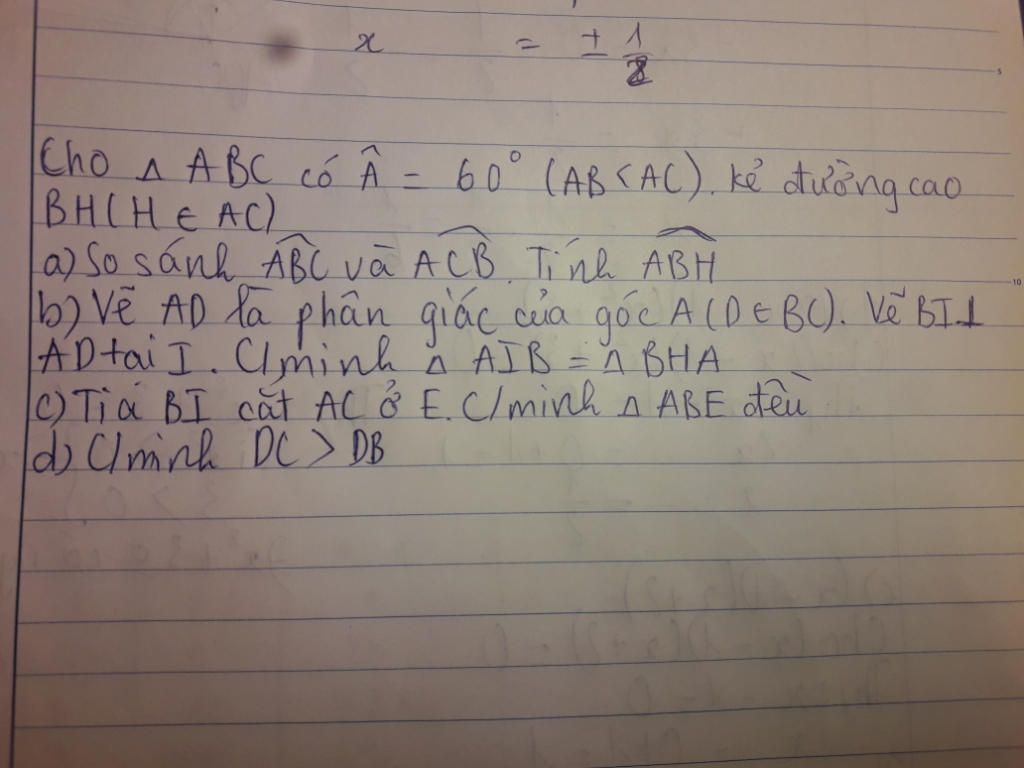 x = ± 1/2
Cho Δ ABC có Â = 60° (AB < AC). kẻ đường cao
BH (H ∈ AC)
a) So sánh \widehat{ABC} và \widehat{ACB}. Tính \widehat{ABH}
b) Vẽ AD là phân giác của góc A (D ∈ BC). Vẽ BI ⊥
AD tại I. C/minh Δ AIB = Δ BHA
c) Tia BI cắt AC ở E. C/minh Δ ABE đều
d) C/minh DC > DB